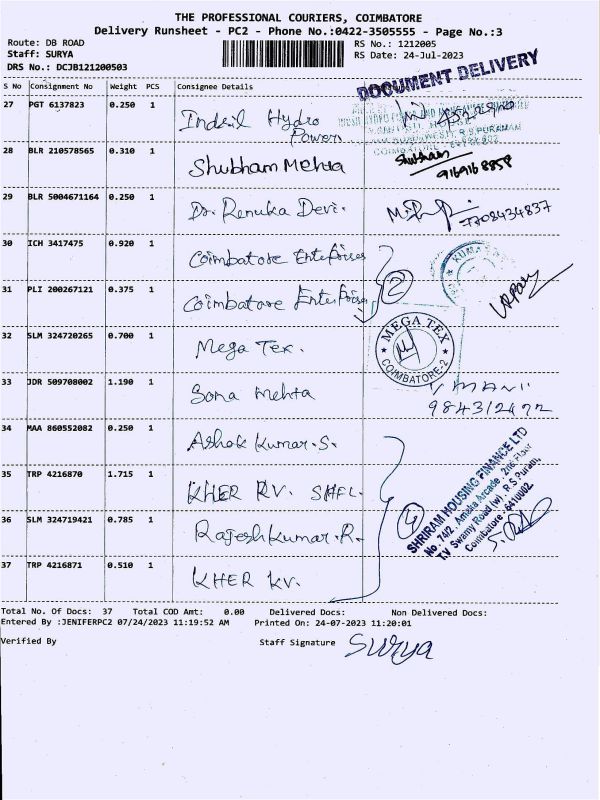 THE PROFESSIONAL COURIERS, COIMBATORE
Delivery Runsheet - PC2 - Phone No.:0422-3505555 - Page No.:3
Route: DB ROAD
Staff: SURYA
DRS No.: DCJB121200503
RS No.: 1212005
RS Date: 24-Jul-2023
DOCUMENT DELIVERY
S No Consignment No Weight PCS Consignee Details
27 PGT 6137823 0.250 1 Hydro
Power
R.S.PURAMAM
28 BLR 210578565 0.310 1 Shubham Mehta Shubham
9169168858
29 BLR 5004671164 0.250 1 Dr. Renuka Devi. 7708434837
30 ICH 3417475 0.920 1 Coimbatore Enterprises
31 PLI 200267121 0.375 1 Coimbatore Enterprises 2
32 SLM 324720265 0.700 1 Mega Tex. MEGA TEX COIMBATORE-2
33 JDR 509708002 1.190 1 Sona Mehta
34 MAA 860552082 0.250 1 Ashok Kumar.S.
35 TRP 4216870 1.715 1 KHER KV. SHFL. 4
SHRIRAM HOUSING FINANCE LTD
No. 74/2, Ameka Arcade, 2nd Floor
T.V Swamy Road (w), R.S Puram,
Coimbatore - 641002
36 SLM 324719421 0.785 1 Rajesh Kumar.R.
37 TRP 4216871 0.510 1 KHER KV.
Total No. Of Docs: 37 Total COD Amt: 0.00 Delivered Docs: Non Delivered Docs:
Entered By :JENIFERPC2 07/24/2023 11:19:52 AM Printed On: 24-07-2023 11:20:01
Verified By Staff Signature Surya